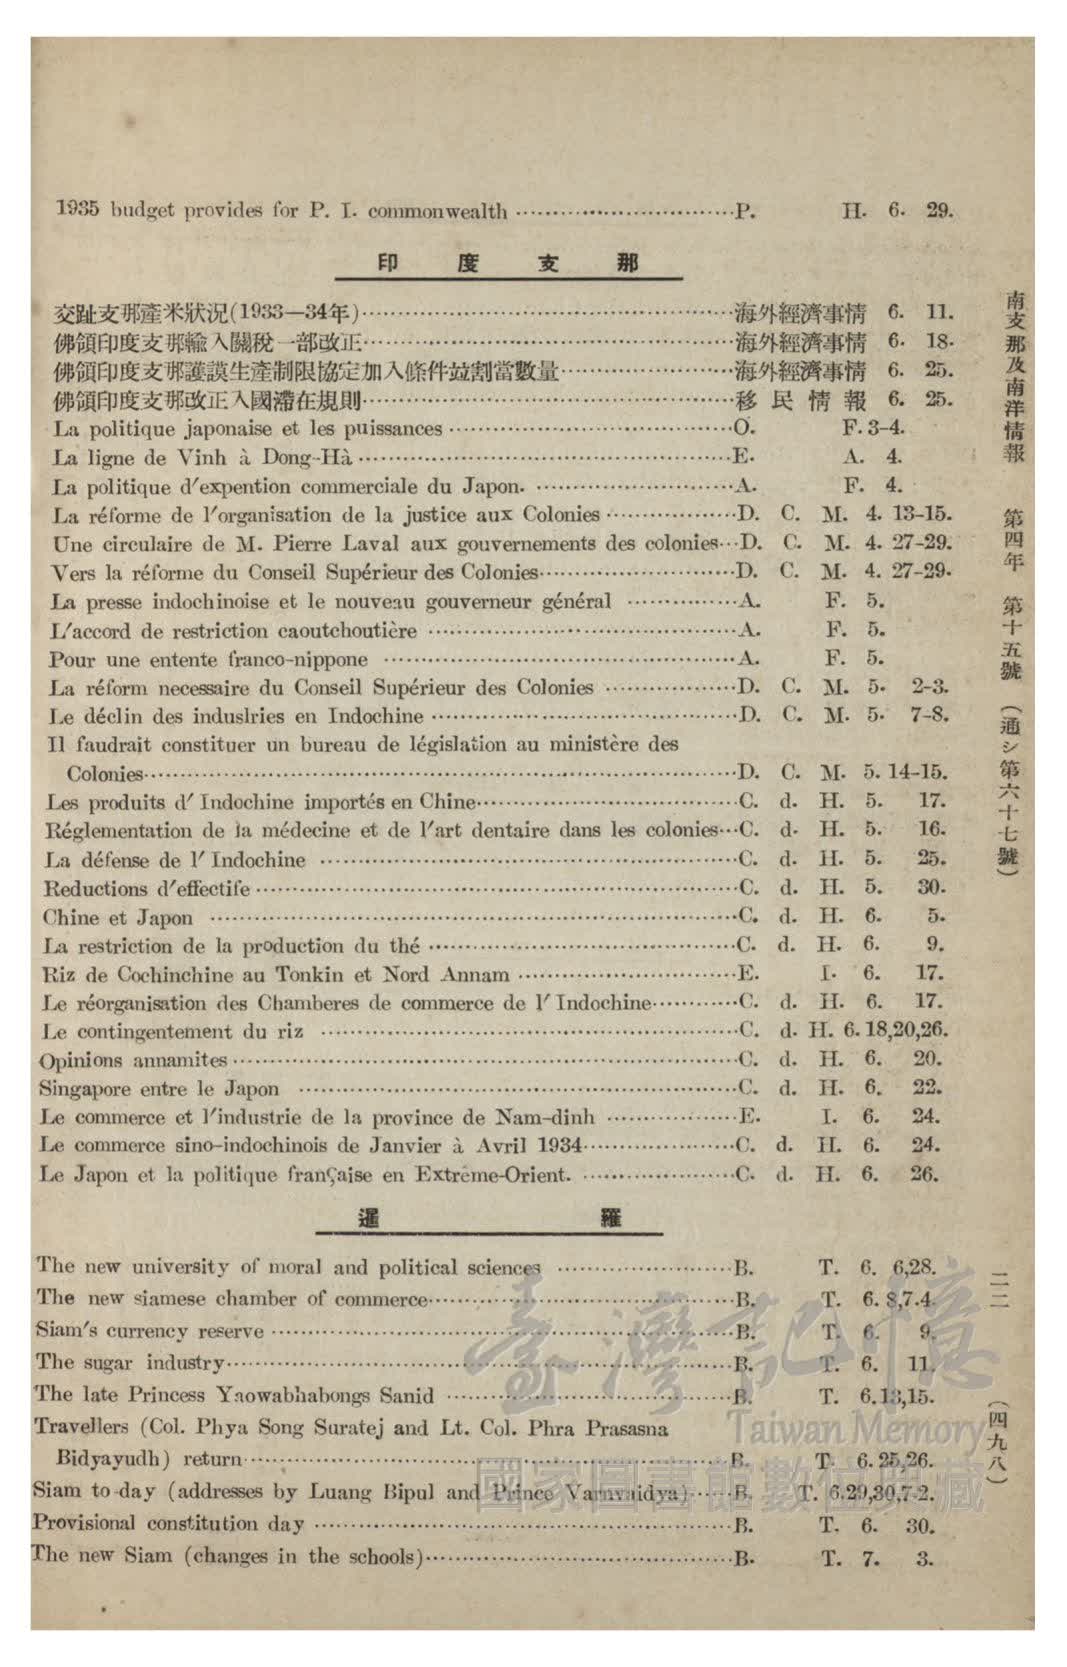 1935 budget provides for P. I. commonwealth ································P. H. 6. 29.
印度支那
交趾支那產米狀況(1933—34年)································海外經濟事情 6. 11.
佛領印度支那輸入關稅一部改正································海外經濟事情 6. 18.
佛領印度支那護謨生產制限協定加入條件竝割當數量················海外經濟事情 6. 25.
佛領印度支那改正入國滯在規則································移民情報 6. 25.
La politique japonaise et les puissances ································O. F. 3-4.
La ligne de Vinh à Dong-Hà ································E. A. 4.
La politique d'expention commerciale du Japon. ························A. F. 4.
La réforme de l'organisation de la justice aux Colonies ················D. C. M. 4. 13-15.
Une circulaire de M. Pierre Laval aux gouvernements des colonies···D. C. M. 4. 27-29.
Vers la réforme du Conseil Supérieur des Colonies························D. C. M. 4. 27-29.
La presse indochinoise et le nouveau gouverneur général ················A. F. 5.
L'accord de restriction caoutchoutière ································A. F. 5.
Pour une entente franco-nippone ································A. F. 5.
La réform necessaire du Conseil Supérieur des Colonies ················D. C. M. 5. 2-3.
Le déclin des induslries en Indochine ································D. C. M. 5. 7-8.
Il faudrait constituer un bureau de législation au ministère des
Colonies································D. C. M. 5. 14-15.
Les produits d' Indochine importés en Chine································C. d. H. 5. 17.
Réglementation de la médecine et de l'art dentaire dans les colonies···C. d. H. 5. 16.
La défense de l' Indochine ································C. d. H. 5. 25.
Reductions d'effectife································C. d. H. 5. 30.
Chine et Japon ································C. d. H. 6. 5.
La restriction de la production du thé ································C. d. H. 6. 9.
Riz de Cochinchine au Tonkin et Nord Annam ························E. I. 6. 17.
Le réorganisation des Chamberes de commerce de l' Indochine············C. d. H. 6. 17.
Le contingentement du riz ································C. d. H. 6. 18,20,26.
Opinions annamites································C. d. H. 6. 20.
Singapore entre le Japon ································C. d. H. 6. 22.
Le commerce et l'industrie de la province de Nam-dinh ················E. I. 6. 24.
Le commerce sino-indochinois de Janvier à Avril 1934····················C. d. H. 6. 24.
Le Japon et la politique française en Extrême-Orient. ····················C. d. H. 6. 26.
暹羅
The new university of moral and political sciences ························B. T. 6. 6,28.
The new siamese chamber of commerce································B. T. 6. 8,7.4.
Siam's currency reserve ································B. T. 6. 9.
The sugar industry································B. T. 6. 11.
The late Princess Yaowabhabongs Sanid ································B. T. 6.13,15.
Travellers (Col. Phya Song Suratej and Lt. Col. Phra Prasasna
Bidyayudh) return································B. T. 6. 25,26.
Siam to-day (addresses by Luang Bipul and Prince Varnvaidya)······B. T. 6.29,30,7-2.
Provisional constitution day ································B. T. 6. 30.
The new Siam (changes in the schools)································B. T. 7. 3.
南支那及南洋情報 第四年 第十五號 (通シ第六十七號)
二二
(四九八)
臺灣記憶
Taiwan Memory
國家圖書館數位典藏